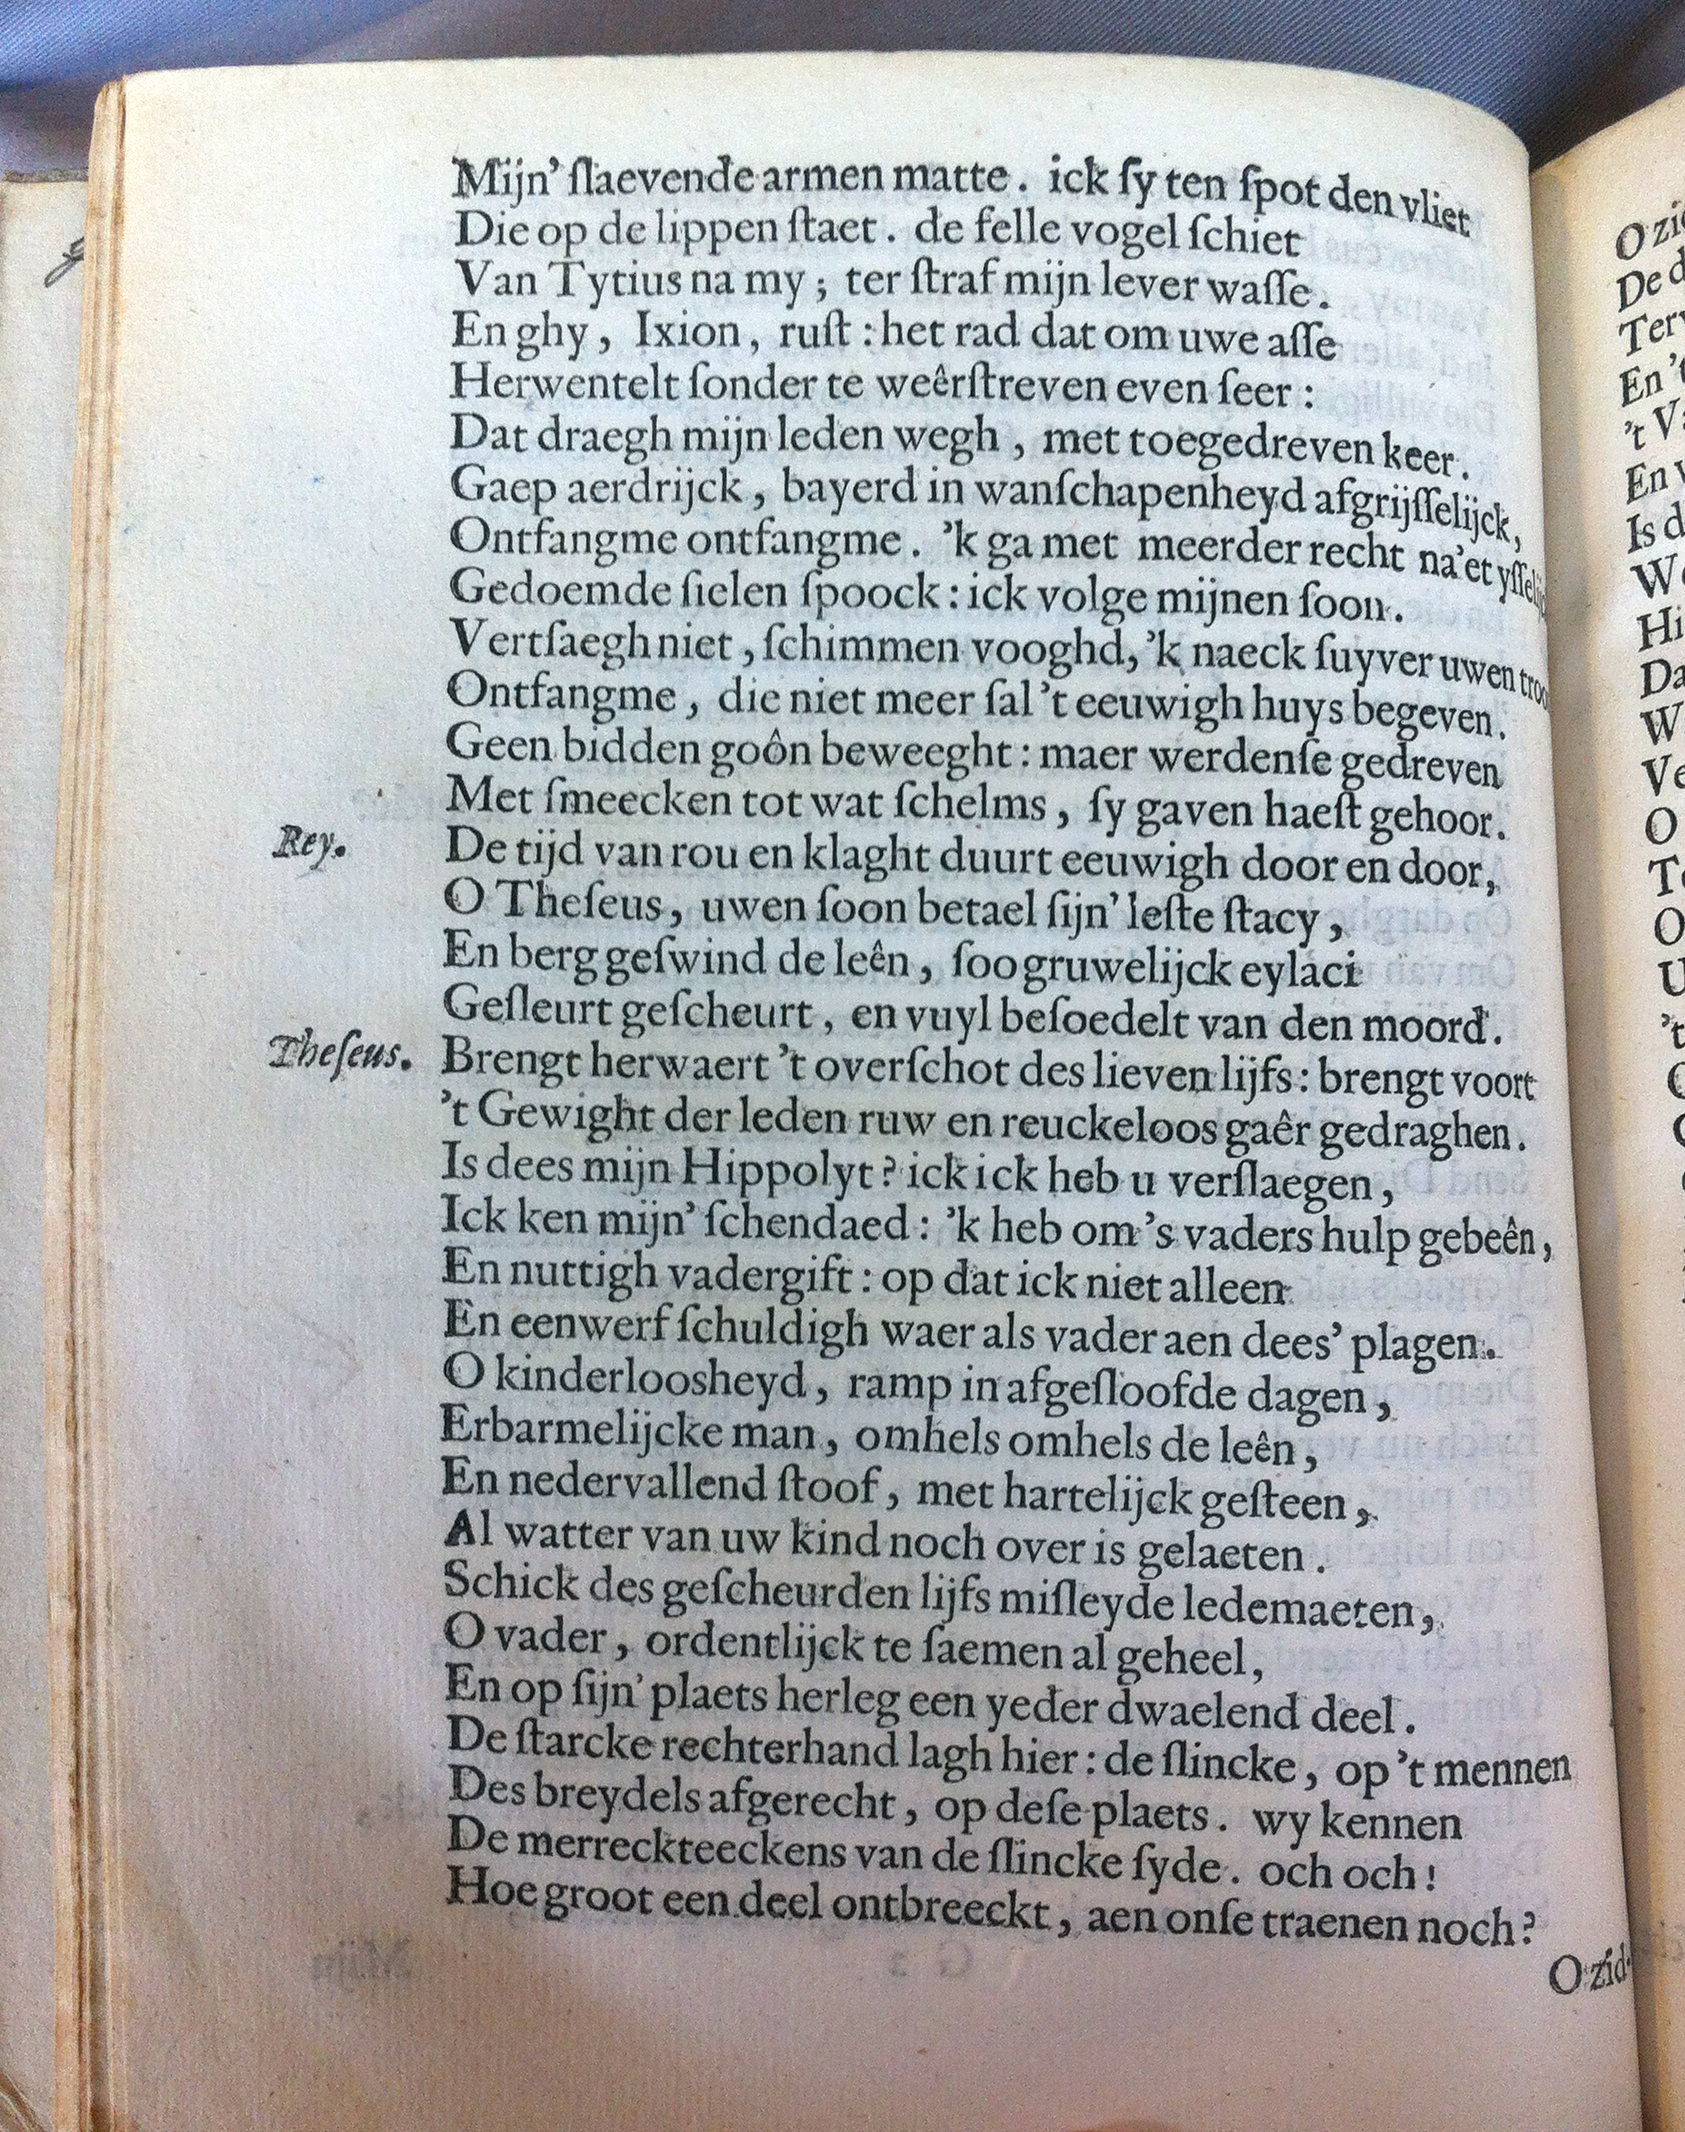 Mijn' ſlaevende armen matte. ick ſy ten ſpot den vliet
Die op de lippen ſtaet. de felle vogel ſchiet
Van Tytius na my; ter ſtraf mijn lever waſſe.
En ghy, Ixion, ruſt: het rad dat om uwe aſſe
Herwentelt ſonder te weêrſtreven even ſeer:
Dat draegh mijn leden wegh, met toegedreven keer.
Gaep aerdrijck, bayerd in wanſchapenheyd afgrijſſelijck,
Ontfangme ontfangme. 'k ga met meerder recht na'et
Gedoemde ſielen ſpoock: ick volge mijnen ſoon.
Vertſaegh niet, ſchimmen vooghd, 'k naeck ſuyver uwen
Ontfangme, die niet meer ſal 't eeuwigh huys begeven.
Geen bidden goôn beweeght: maer werdenſe gedreven
Met ſmeecken tot wat ſchelms, ſy gaven haeſt gehoor.
Rey. De tijd van rou en klaght duurt eeuwigh door en door,
O Theſeus, uwen ſoon betael ſijn' leſte ſtacy,
En berg geſwind de leên, ſoo gruwelijck eylaci
Geſleurt geſcheurt, en vuyl beſoedelt van den moord.
Theſeus. Brengt herwaert 't overſchot des lieven lijfs: brengt voort
't Gewight der leden ruw en reuckeloos gaêr gedraghen.
Is dees mijn Hippolyt? ick ick heb u verſlaegen,
Ick ken mijn' ſchendaed: 'k heb om 's vaders hulp gebeên,
En nuttigh vadergift: op dat ick niet alleen
En eenwerf ſchuldigh waer als vader aen dees' plagen.
O kinderloosheyd, ramp in afgeſloofde dagen,
Erbarmelijcke man, omhels omhels de leên,
En nedervallend ſtoof, met hartelijck geſteen,
Al watter van uw kind noch over is gelaeten.
Schick des geſcheurden lijfs miſleyde ledemaeten,
O vader, ordentlijck te ſaemen al geheel,
En op ſijn' plaets herleg een yeder dwaelend deel.
De ſtarcke rechterhand lagh hier: de ſlincke, op 't mennen
Des breydels afgerecht, op deſe plaets. wy kennen
De merreckteeckens van de ſlincke ſyde. och och!
Hoe groot een deel ontbreeckt, aen onſe traenen noch?
O zid-